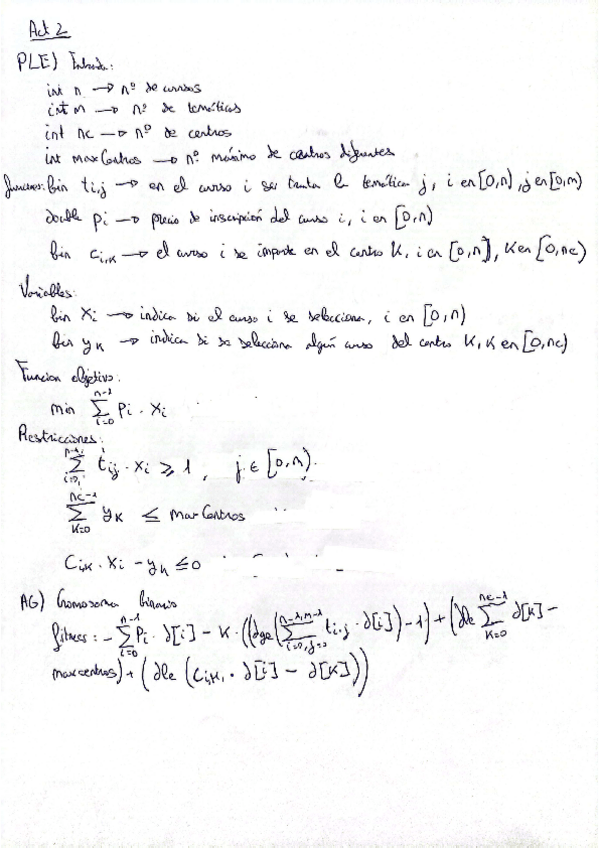 Act 2
PLE) Entrada:
int n → nº de cursos
int m → nº de temáticas
int nc → nº de centros
int maxCentros → nº máximo de centros diferentes
funciones: bin ti,j → en el curso i se trata la temática j, i en [0,n), j en [0,m)
double pi → precio de inscripción del curso i, i en [0,n)
bin ci,k → el curso i se imparte en el centro K, i en [0,n), K en [0,nc)
Variables:
bin xi → indica si el curso i se selecciona, i en [0,n)
bin yk → indica si se selecciona algún curso del centro K, K en [0,nc)
Funcion objetivo:
min ∑_{i=0}^{n-1} Pi · Xi
Restricciones:
∑_{i=0}^{n-1} tij · xi ≥ 1, j ∈ [0,m).
∑_{K=0}^{nc-1} yK ≤ maxCentros
Ci,K · Xi − yk ≤ 0
AG) Cromosoma binario
fitness: − ∑_{i=0}^{n-1} Pi · d[i] − K · ((dge(∑_{i=0,j=0}^{n-1,m-1} ti,j · d[i]) − 1) + (dle ∑_{K=0}^{nc-1} d[K] −
maxcentros) + (dle (Ci,K · d[i] − d[K]))